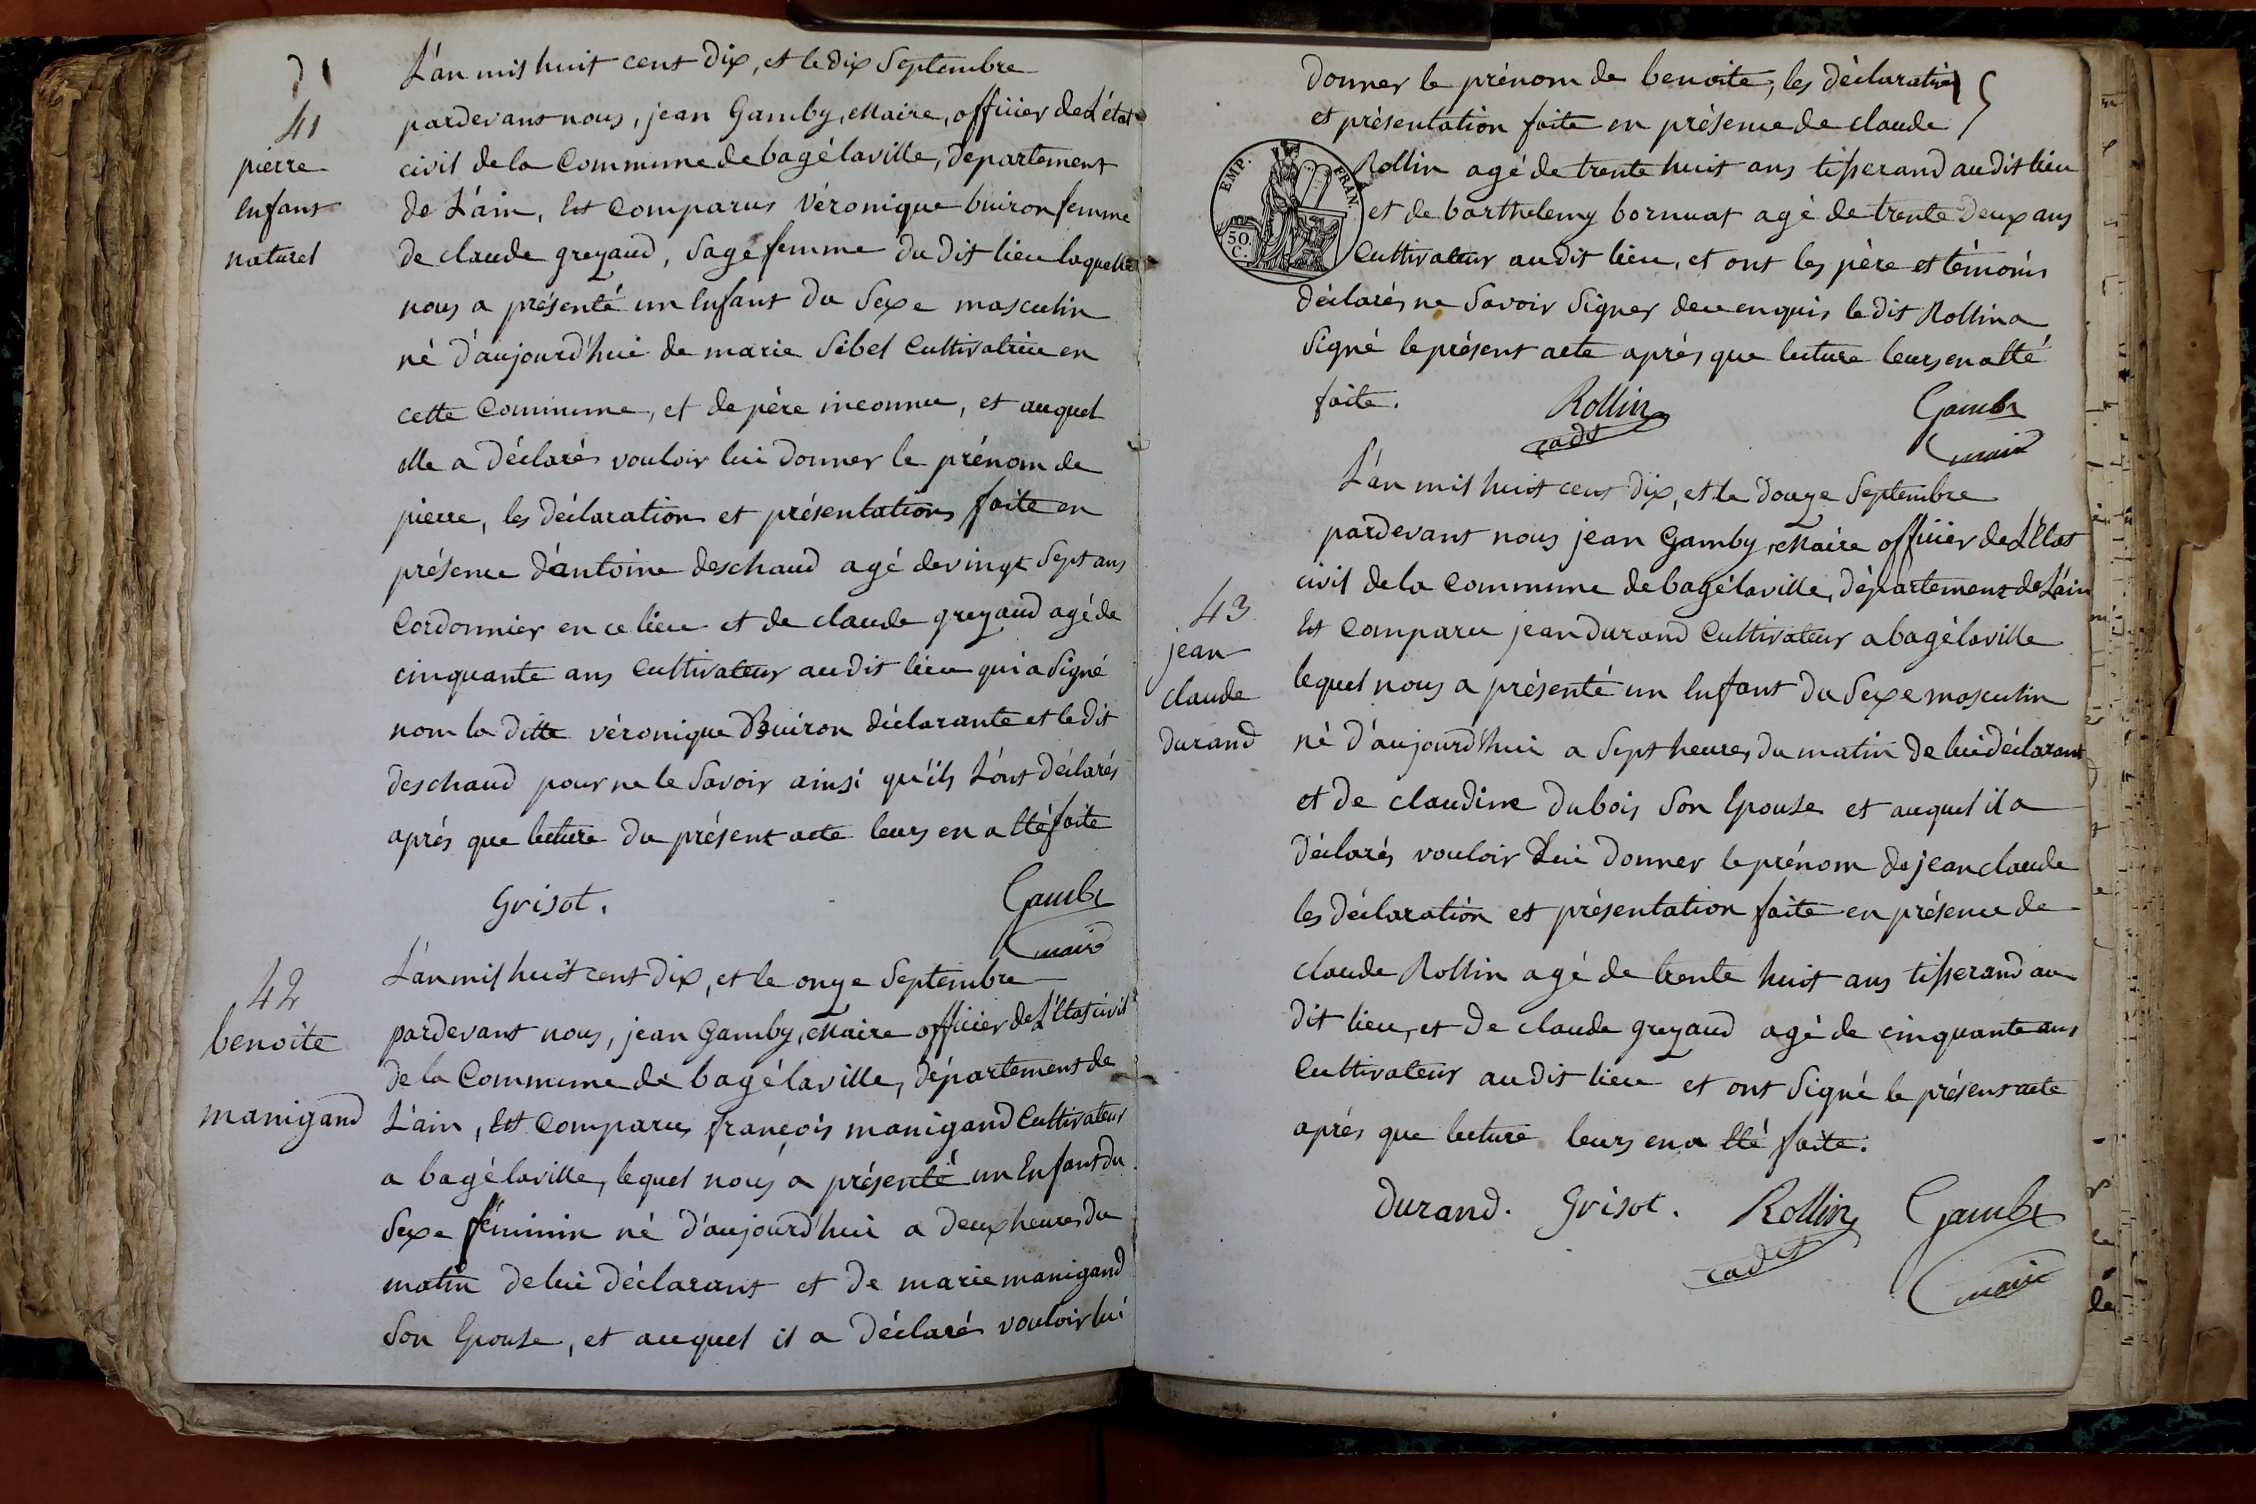 41
pierre
enfant
naturel
L'an mil huit cent dix, et le dix Septembre
pardevant nous, jean Gamby, Maire, officier de L'état
civil de la Commune de bagé laville, département
de L'ain, Est Comparus Véronique buiron femme
de claude greyaud, Sage femme du dit lieu laquelle
nous a présenté un Enfant du Sexe masculin
né d'aujourd'hui de marie Sibel Cultivatrice en
cette Commune, et de père inconnu, et auquel
elle a déclarés vouloir lui donner le prénom de
pierre, les déclaration et présentations faite en
présence d'antoine deschaud agé de vingt Sept ans
Cordonnier en ce lieu et de claude greyaud agé de
cinquante ans Cultivateur au dit lieu qui a Signé
nom la ditte véronique Buiron déclarante et le dit
deschaud pour ne le Savoir ainsi qu'ils L'ont déclarés
après que lecture du présent acte leurs en a Eté faite
Grisot. Gambi
maire
42
benoite
manigand
L'an mil huit cent dix, et le onze Septembre
pardevant nous, jean Gamby, Maire officier de L'Etat civil
de la Commune de bagé laville, département de
L'ain, Est Comparus françois manigand Cultivateur
a bagé laville, lequel nous a présenté un Enfant du
Sexe féminin né d'aujourd'hui a deux heures du
matin de lui déclarant et de marie manigand
Son Epouse, et auquel il a déclarés vouloir lui
donner le prénom de benoite, les déclaration
et présentation faite en présence de claude
EMP. FRAN.
50.
C.
Rollin agé de trente huit ans tisserand au dit lieu
et de barthelemy bornuat agé de trente deux ans
Cultivateur au dit lieu, et ont les père et témoins
déclarés ne Savoir Signer de ce enquis le dit Rollin a
Signé le présent acte après que lecture leurs en a Eté
faite. Rollin Gambi
cadet maire
43
jean
claude
durand
L'an mil huit cent dix, et le douze Septembre
pardevant nous jean Gamby, Maire officier de L'Etat
civil de la Commune de bagé laville, département de L'ain
Est Comparu jean durand Cultivateur a bagé laville
lequel nous a présenté un Enfant du Sexe masculin
né d'aujourd'hui a Sept heures du matin de lui déclarant
et de claudine dubois Son Epouse et auquel il a
déclarés vouloir Lui donner le prénom de jean claude
les déclaration et présentation faite en présence de
claude Rollin agé de trente huit ans tisserand au
dit lieu, et de claude greyaud agé de cinquante ans
Cultivateur au dit lieu et ont Signé le présent acte
après que lecture leurs en a Eté faite.
Durand. Grisot. Rollin Gambi
cadet maire